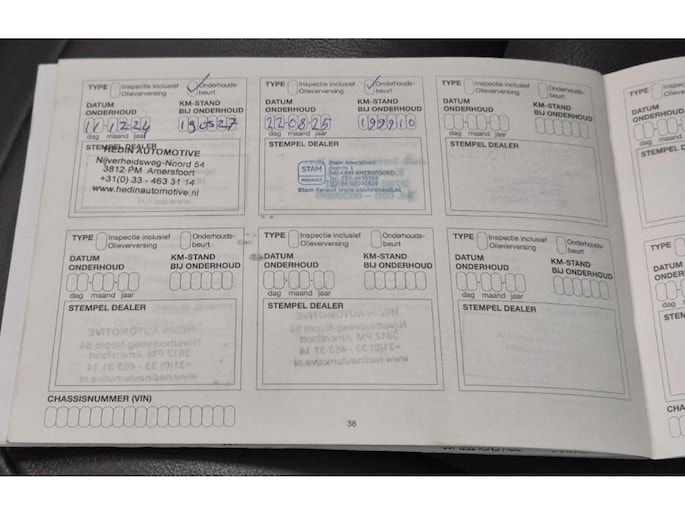 TYPE Inspectie inclusief Olieverversing Onderhouds-beurt
DATUM ONDERHOUD KM-STAND BIJ ONDERHOUD
11-12-24 190527
dag maand jaar
STEMPEL DEALER
HEDIN AUTOMOTIVE
Nijverheidsweg-Noord 54
3812 PM Amersfoort
+31(0) 33 - 463 31 14
www.hedinautomotive.nl
TYPE Inspectie inclusief Olieverversing Onderhouds-beurt
DATUM ONDERHOUD KM-STAND BIJ ONDERHOUD
22-08-25 199910
dag maand jaar
STEMPEL DEALER
STAM
RENAULT
Stam Amersfoort
AMERSFOORT
TYPE Inspectie inclusief Olieverversing Onderhouds-beurt
DATUM ONDERHOUD KM-STAND BIJ ONDERHOUD
dag maand jaar
STEMPEL DEALER
TYPE Inspectie inclusief Olieverversing Onderhouds-beurt
DATUM ONDERHOUD KM-STAND BIJ ONDERHOUD
dag maand jaar
STEMPEL DEALER
TYPE Inspectie inclusief Olieverversing Onderhouds-beurt
DATUM ONDERHOUD KM-STAND BIJ ONDERHOUD
dag maand jaar
STEMPEL DEALER
TYPE Inspectie inclusief Olieverversing Onderhouds-beurt
DATUM ONDERHOUD KM-STAND BIJ ONDERHOUD
dag maand jaar
STEMPEL DEALER
CHASSISNUMMER (VIN)
38
TYPE
DATUM
dag
STEMPEL
TYPE
DATUM
dag